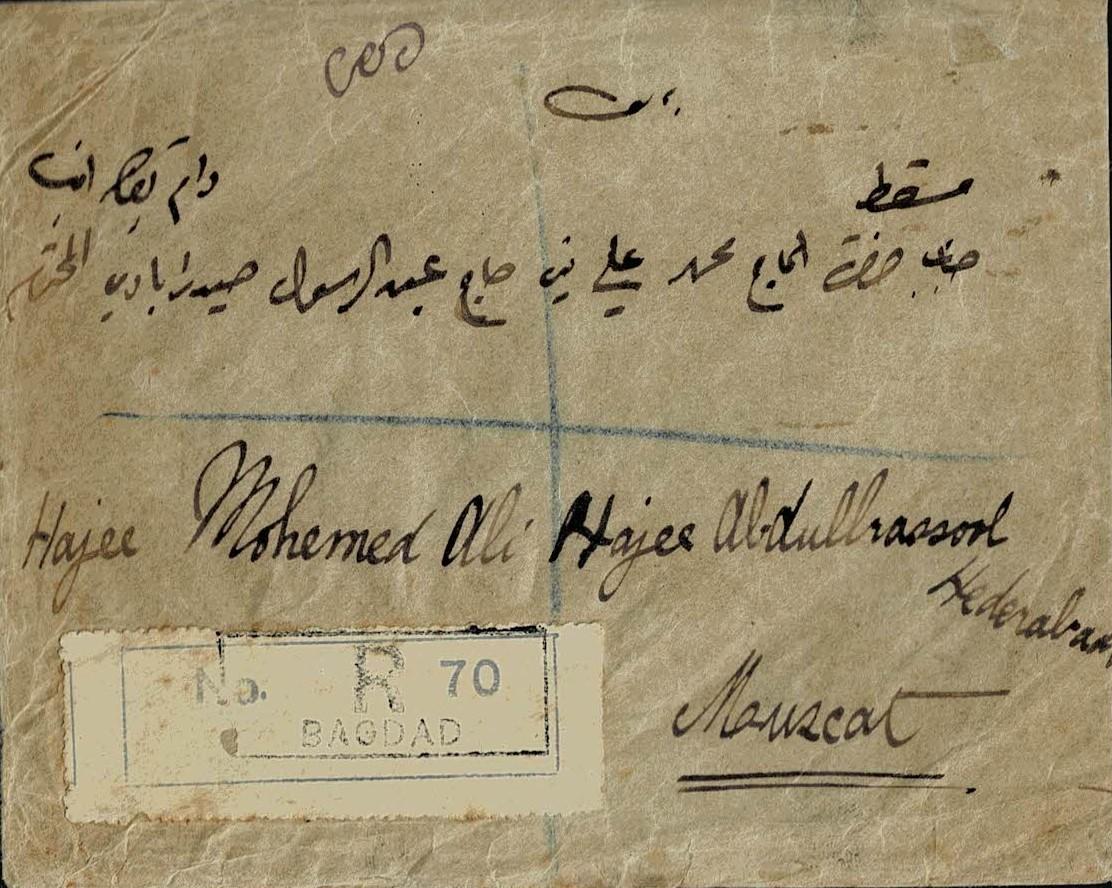 مسقط
جناب حضرة الحاج محمد علي بن حاج عبدالرسول حيدرابادي المحترم
دام بقاه امين
Hajee Mohemed Ali Hajee Abdullrassool
Hederaban
Mouscat
No. R 70
BAGDAD